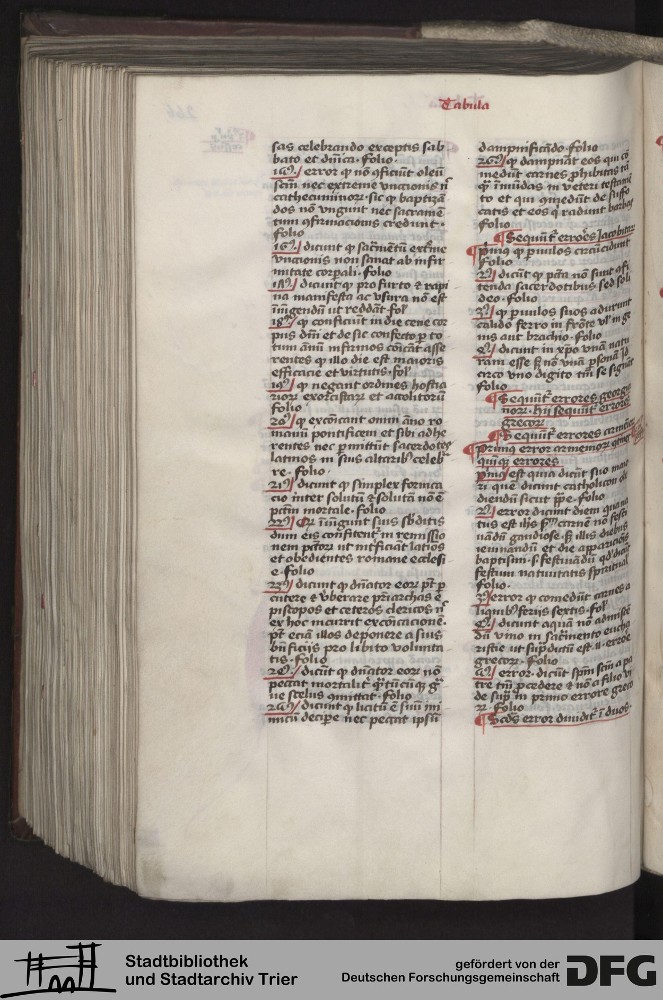 Tabula
sas celebrando exceptis sab
bato et dn̄ica · folio ·
15ꝰ / error ꝙ nō ꝯficiūt oleū
scm̄ nec extreme vnccionis nc̄
cathecuminoꝝ · sic ꝙ baptizā
dos nō vngunt nec sacramē
tum ꝯfirmacionis credunt ·
folio
16ꝰ / dicunt ꝙ sac̄mētū ext̄me
vnccionis non sanat ab infir
mitate corꝑali · folio
17ꝰ / dicunt ꝙ pro furto et rapi
na manifesta ac vsura nō est
iniūgendū ut reddāt · fol̄
18ꝰ / ꝙ conficiunt in die cene cor
pus dn̄i et de sic confecto ꝑ to
tum annū infirmos cōicāt asse
rentes ꝙ illo die est maioris
efficacie et virtutis · fol̄
19ꝰ / ꝙ negant ordines hostia
rioꝝ exorcistaꝝ et accolitorū
folio
20ꝰ / ꝙ excōicant omni anno ro
manū pontificem et sibi adhe
rentes nec ꝑmittūt sacerdotes
latinos in suis altaribꝫ celeb̄
re · folio ·
21ꝰ / dicunt ꝙ simplex fornica
cio inter solutū et solutā nō ē
pctm̄ mortale · folio
22ꝰ / Qꝛ iniūgunt suis sb̄ditis
dum eis confitent̄ in remissio
nem pctoꝝ ut int̄ficiāt latīos
et obedientes romane ecclesi
e · folio
23ꝰ / dicunt ꝙ dn̄ator eoꝝ pt̄ ꝑ
cutere et vberare pr̄iarchas e
piscopos et ceteros clericos nc̄
ex hoc incurrit excōicacionē ·
pt̄ eciā illos deponere a suis
bn̄ficijs pro libito volunta
tis · folio
24ꝰ / dicūt ꝙ dn̄ator eoꝝ nō
peccat mortalit̄ q̄ntūcūqꝫ g̃
ue scelus ꝯmittat · folio
25ꝰ / dicunt ꝙ licitū ē suū ini
micū deciꝑe nec peccat ipsū
dampnificādo · folio
26ꝰ / ꝙ dampnāt eos qui cō
medūt carnes ꝓhibitas
īmūdas in veteri testamē
to et qui ꝯmedūt de suffo
catis et eos qͥ radunt barbas
folio
Sequūt̄ errores Jacobitaꝝ
primꝰ ꝙ ꝑuulos circūcidunt
folio
2ꝰ / dicūt ꝙ pctā nō sunt ꝯfi
tenda sacerdotibus sed soli
deo · folio
3ꝰ / ꝙ ꝑuulos suos adurunt
calido ferro in frōte vl̄ in ge
nis aut brachio · folio
4ꝰ / dicunt in xp̄o vnā natu
ram esse sꝫ nō vnā ꝑsonā Id
circo vno digito tm̄ se signāt
folio
Sequūt̄ errores georgia
noꝝ · hij sequūt̄ errores
grecoꝝ
Sequūt̄ errores armēoꝝ
Primus error armenioꝝ
quiqꝫ errores
primꝰ est quia dicūt suo maio
ri que dicunt catholicon
diendū sicut pp̄e · folio
2ꝰ / error dicunt diem quo na
tus est ih̄s scd̄m carnē nō festi
uādū gaudiose · sꝫ illis diebus
ieiunandū et die apparicōis
baptism̄ · s · festiuādū qd̄ dicūt
festum natiuitatis spiritual̄
folio ·
3ꝰ / error ꝙ comedūt carnes a
liquibꝫ ferijs sextis · fol̄
4ꝰ / dicunt aquā nō admiscē
dā vino in sac̄mento eucha
ristie ut supͣ dictū est · ii · errore
grecoꝝ · folio
5ꝰ / error · dicūt spm̄ scm̄ a pa
tre tm̄ ꝓcedere et nō a filio vt
de supͣ in primo errore greco
ꝝ · folio
Scd̄s error diuidit̄ ī duos ·
Stadtbibliothek
und Stadtarchiv Trier
gefördert von der
Deutschen Forschungsgemeinschaft
DFG